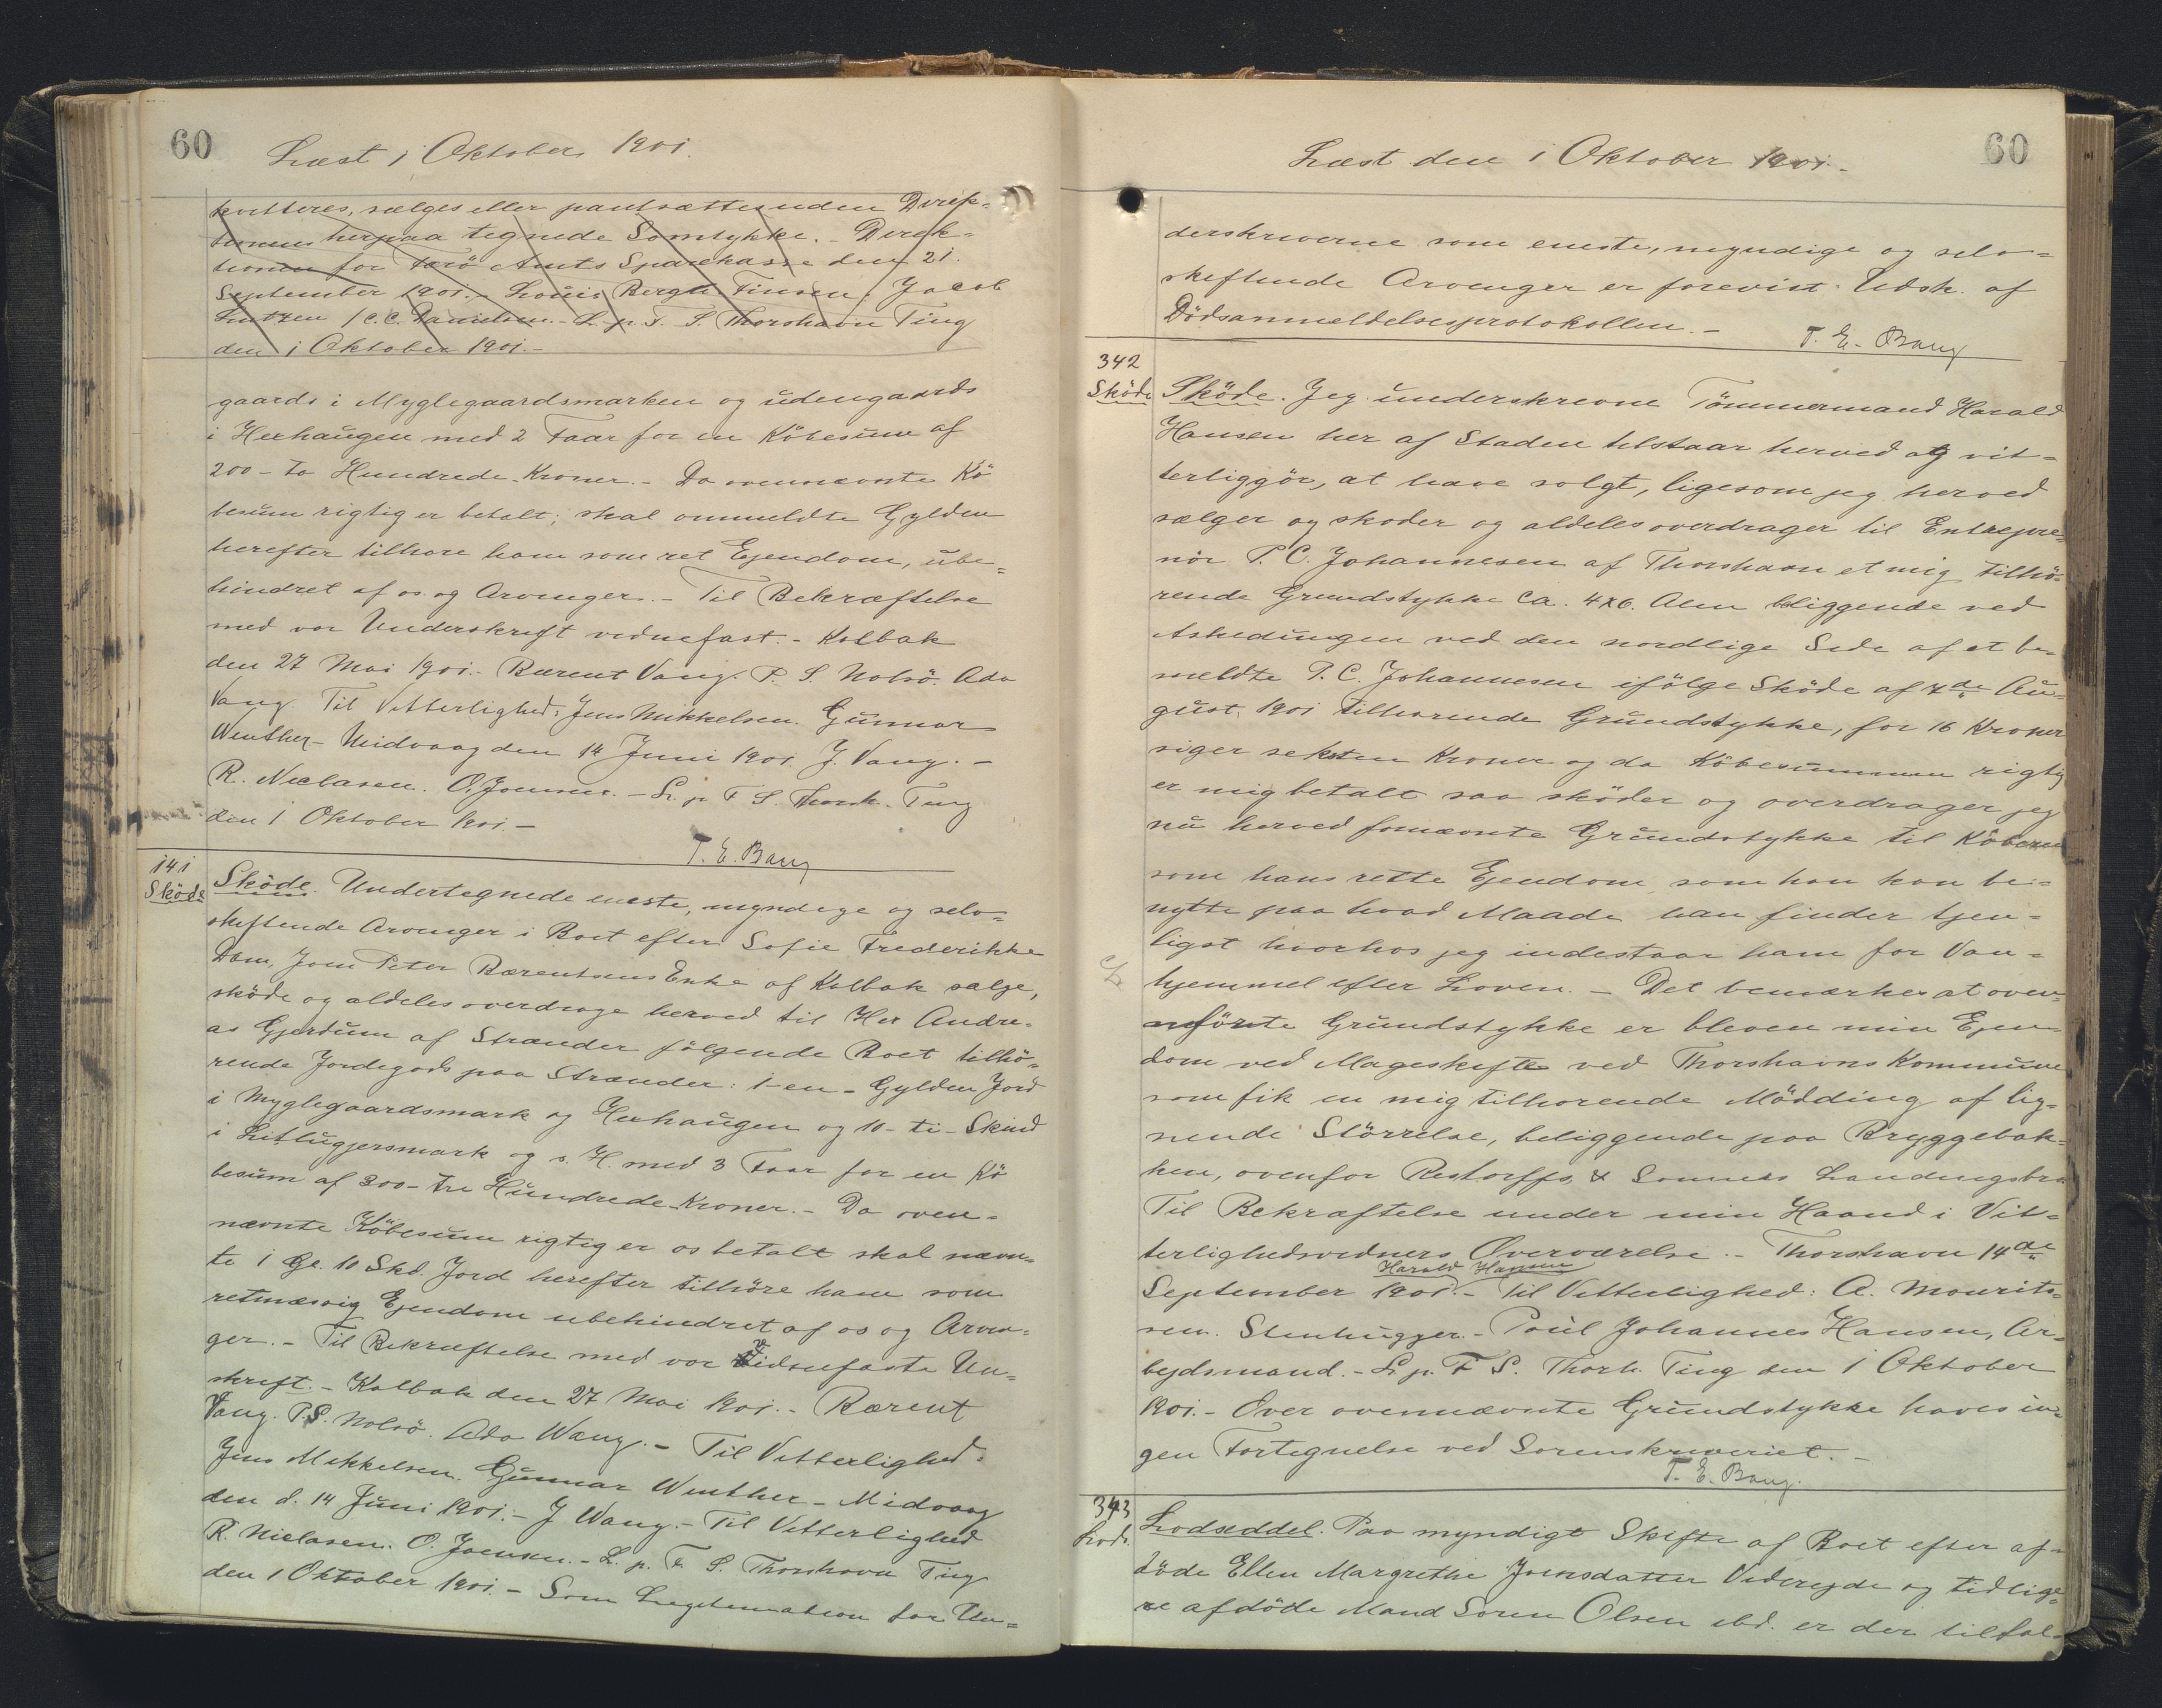 60
Læst 1 Oktober 1901.
kvitteres, sælges eller pantsættes uden Direk=
tionens herpaa tegnede Samtykke. - Direk=
tionen for Færö Amts Sparekasse den 21.
September 1901. - Louis Bergh. Finsen / Jacob
Lutzen / C. C. Danielsen. - L. p. F. S. Thorshavn Ting
den 1 Oktober 1901. -
gaards i Myglegaardsmarken og udengaards
i Heehaugen med 2 Faar for en Köbesum af
200 - to Hundrede - Kroner. - Da ovennævnte Kö
besum rigtig er betalt; skal ommeldte Gylden
herefter tilhöre ham som ret Ejendom, ube=
hindret af os og Arvinger. - Til Bekræftelse
med vor Underskrift vidnefast. - Kolbak
den 27 Mai 1901. - Bærent Vang. P. S. Nolsö. Ada
Vang. Til Vitterlighed: Jens Mikkelsen. Gunnar
Wenther - Midvaag den 14 Juni 1901. J. Vang. -
R. Nielasen. O. Joensen. - L. p. F. S. Thorsh. Ting
den 1 Oktober 1901. -
T. E. Bang
141
Sköde
Sköde. Undertegnede eneste, myndige og selv=
skiftende Arvinger i Boet efter Sofie Frederikke
Dam, Joen Peter Bærentsens Enke af Kolbak sælge,
sköde og aldeles overdrage herved til Her Andre=
as Gjerdum af Strænder fölgende Boet tilhö=
rende Jordegods paa Strænder: 1 - en - Gylden Jord
i Myglegaardsmark og Heehaugen og 10 - ti - Skind
i Litlugjersmark og s. H. med 3 Faar for en Kö
besum af 300 - tre Hundrede - Kroner. - Da oven=
nævnte Köbesum rigtig er os betalt skal nævn=
te 1 Gl. 10 Skd. Jord herefter tilhöre ham som
retmæssig Ejendom ubehindret af os og Arvin=
ger. - Til Bekræftelse med vor vidnefaste Un=
skrift. - Kolbak den 27 Mai 1901. - Bærent
Vang. P. S. Nolsö. Ada Wang. - Til Vitterlighed:
Jens Mikkelsen. Gunnar Wenther - Midvaag
den d. 14 Juni 1901. - J Wang. - Til Vitterlighed
R. Nielasen. O. Joensen. - L. p. F. S. Thorshavn Ting
den 1 Oktober 1901. - Som Legitimation for Un=
Læst den 1 Oktober 1901. -
60
derskriverne som eneste, myndige og selv=
skiftende Arvinger er forevist Udsk. af
Dödsanmeldelsesprotokollen. -
T. E. Bang
342
Sköde
Sköde. Jeg underskrevne Tömmermand Harald
Hansen her af Staden tilstaar herved og vit=
terliggör, at have solgt, ligesom jeg herved
sælger og skoder og aldeles overdrager til Entrepre=
nör P. C. Johannesen af Thorshavn et mig tilhö=
rende Grundstykke ca. 4 x 6. Alen beliggende ved
Askedungen ved den nordlige Side af et be=
meldte P. C. Johannesen ifölge Sköde af 4de Au=
gust 1901 tilhörende Grundstykke, for 16 Kroner
siger seksten Kroner og da Köbesummen rigtig
er mig betalt saa sköder og overdrager jeg
nu herved fornævnte Grundstykke til Köberen
som hans rette Ejendom som han kan be=
nytte paa hvad Maade han finder tjen=
ligst hvorhos jeg indestaar ham for Van=
hjemmel efter Loven. - Det bemærkes at oven=
anförte Grundstykke er bleven min Ejen=
dom ved Mageskifte ved Thorshavns Kommune
som fik en mig tilhörende Mödding af lig=
nende Störrelse, beliggende paa Bryggebak=
ken, ovenfor Restorffs & Sönners Landingsbro
Til Bekræftelse under min Haand i Vit=
terlighedsvidners Overværelse. - Thorshavn 14de
Harald Hansen
September 1901. - Til Vitterlighed: A. Mourits=
sen. Stenhugger. - Poul Johannes Hansen, Ar=
bejdsmand. - L. p. F. S. Thorh. Ting den 1 Oktober
1901. - Over ovennævnte Grundstykke haves in=
gen Fortegnelse ved Sorenskriveriet. -
T. E. Bang.
343
Lods.
Lodseddel. Paa myndigt Skifte af Boet efter af=
döde Ellen Margrethe Joensdatter Viderejde og tidlige=
re afdöde Mand Soren Olsen ibd. er der tilfal=